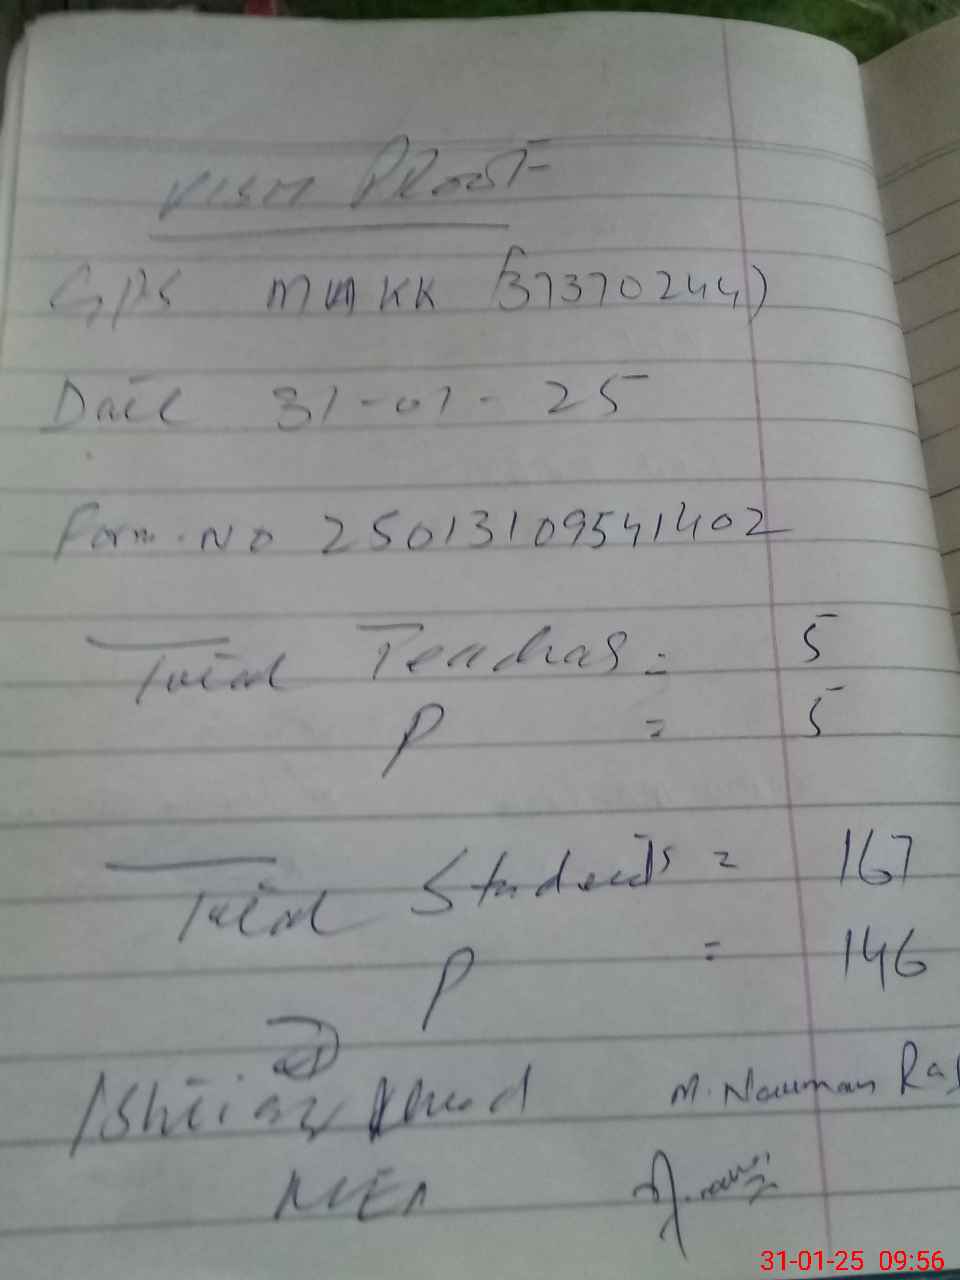 Visit Proof
GPS MMKK (37370244)
Date 31-01-25
Form.No 25013109541402
Total Teachers = 5
P = 5
Total Students = 167
P = 146
M. Nauman
MEA
31-01-25 09:56